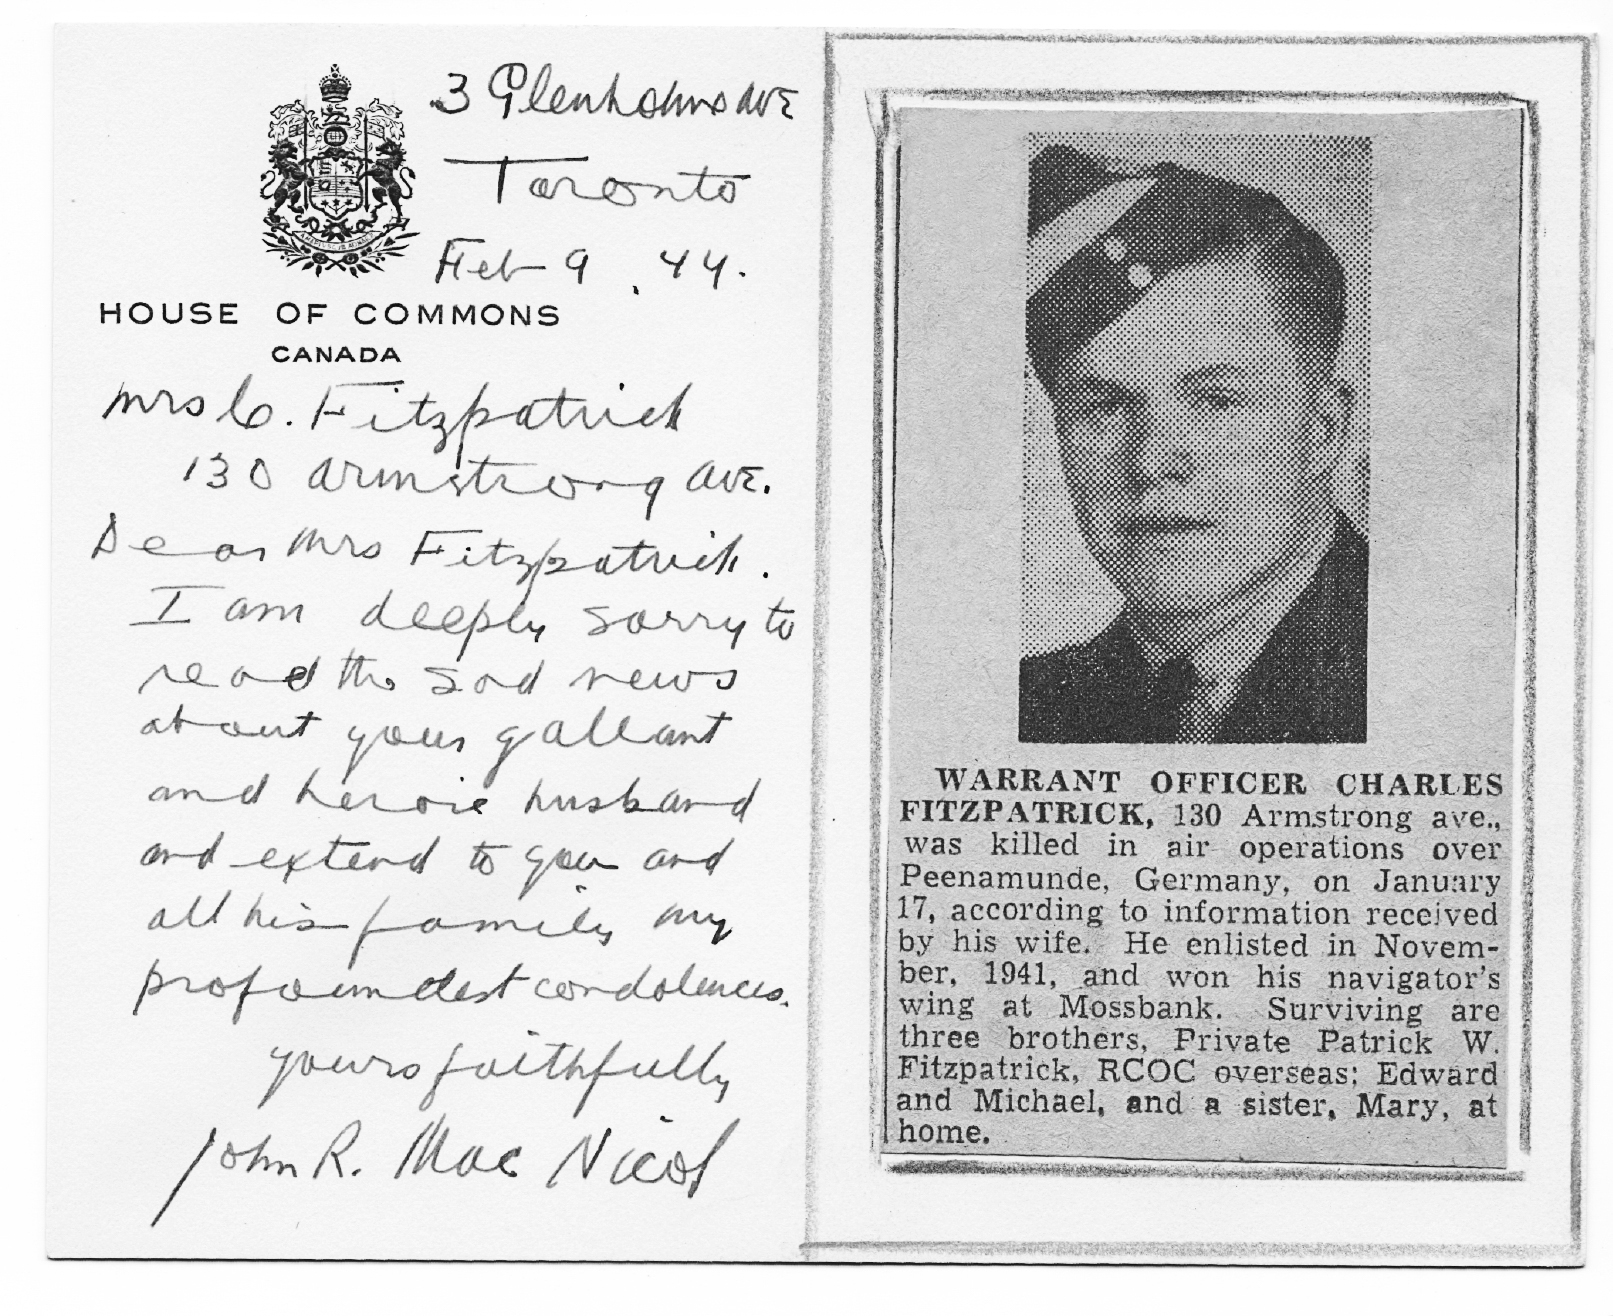 3 Glenholme Ave
Toronto
Feb 9, 44.
HOUSE OF COMMONS
CANADA
Mrs C. Fitzpatrick
130 Armstrong Ave.
Dear Mrs Fitzpatrick.
I am deeply sorry to
read the sad news
about your gallant
and heroic husband
and extend to you and
all his family my
profoundest condolences.
yours faithfully
John R. MacNicol
WARRANT OFFICER CHARLES
FITZPATRICK, 130 Armstrong ave.,
was killed in air operations over
Peenamunde, Germany, on January
17, according to information received
by his wife. He enlisted in Novem-
ber, 1941, and won his navigator's
wing at Mossbank. Surviving are
three brothers, Private Patrick W.
Fitzpatrick, RCOC overseas; Edward
and Michael, and a sister, Mary, at
home.